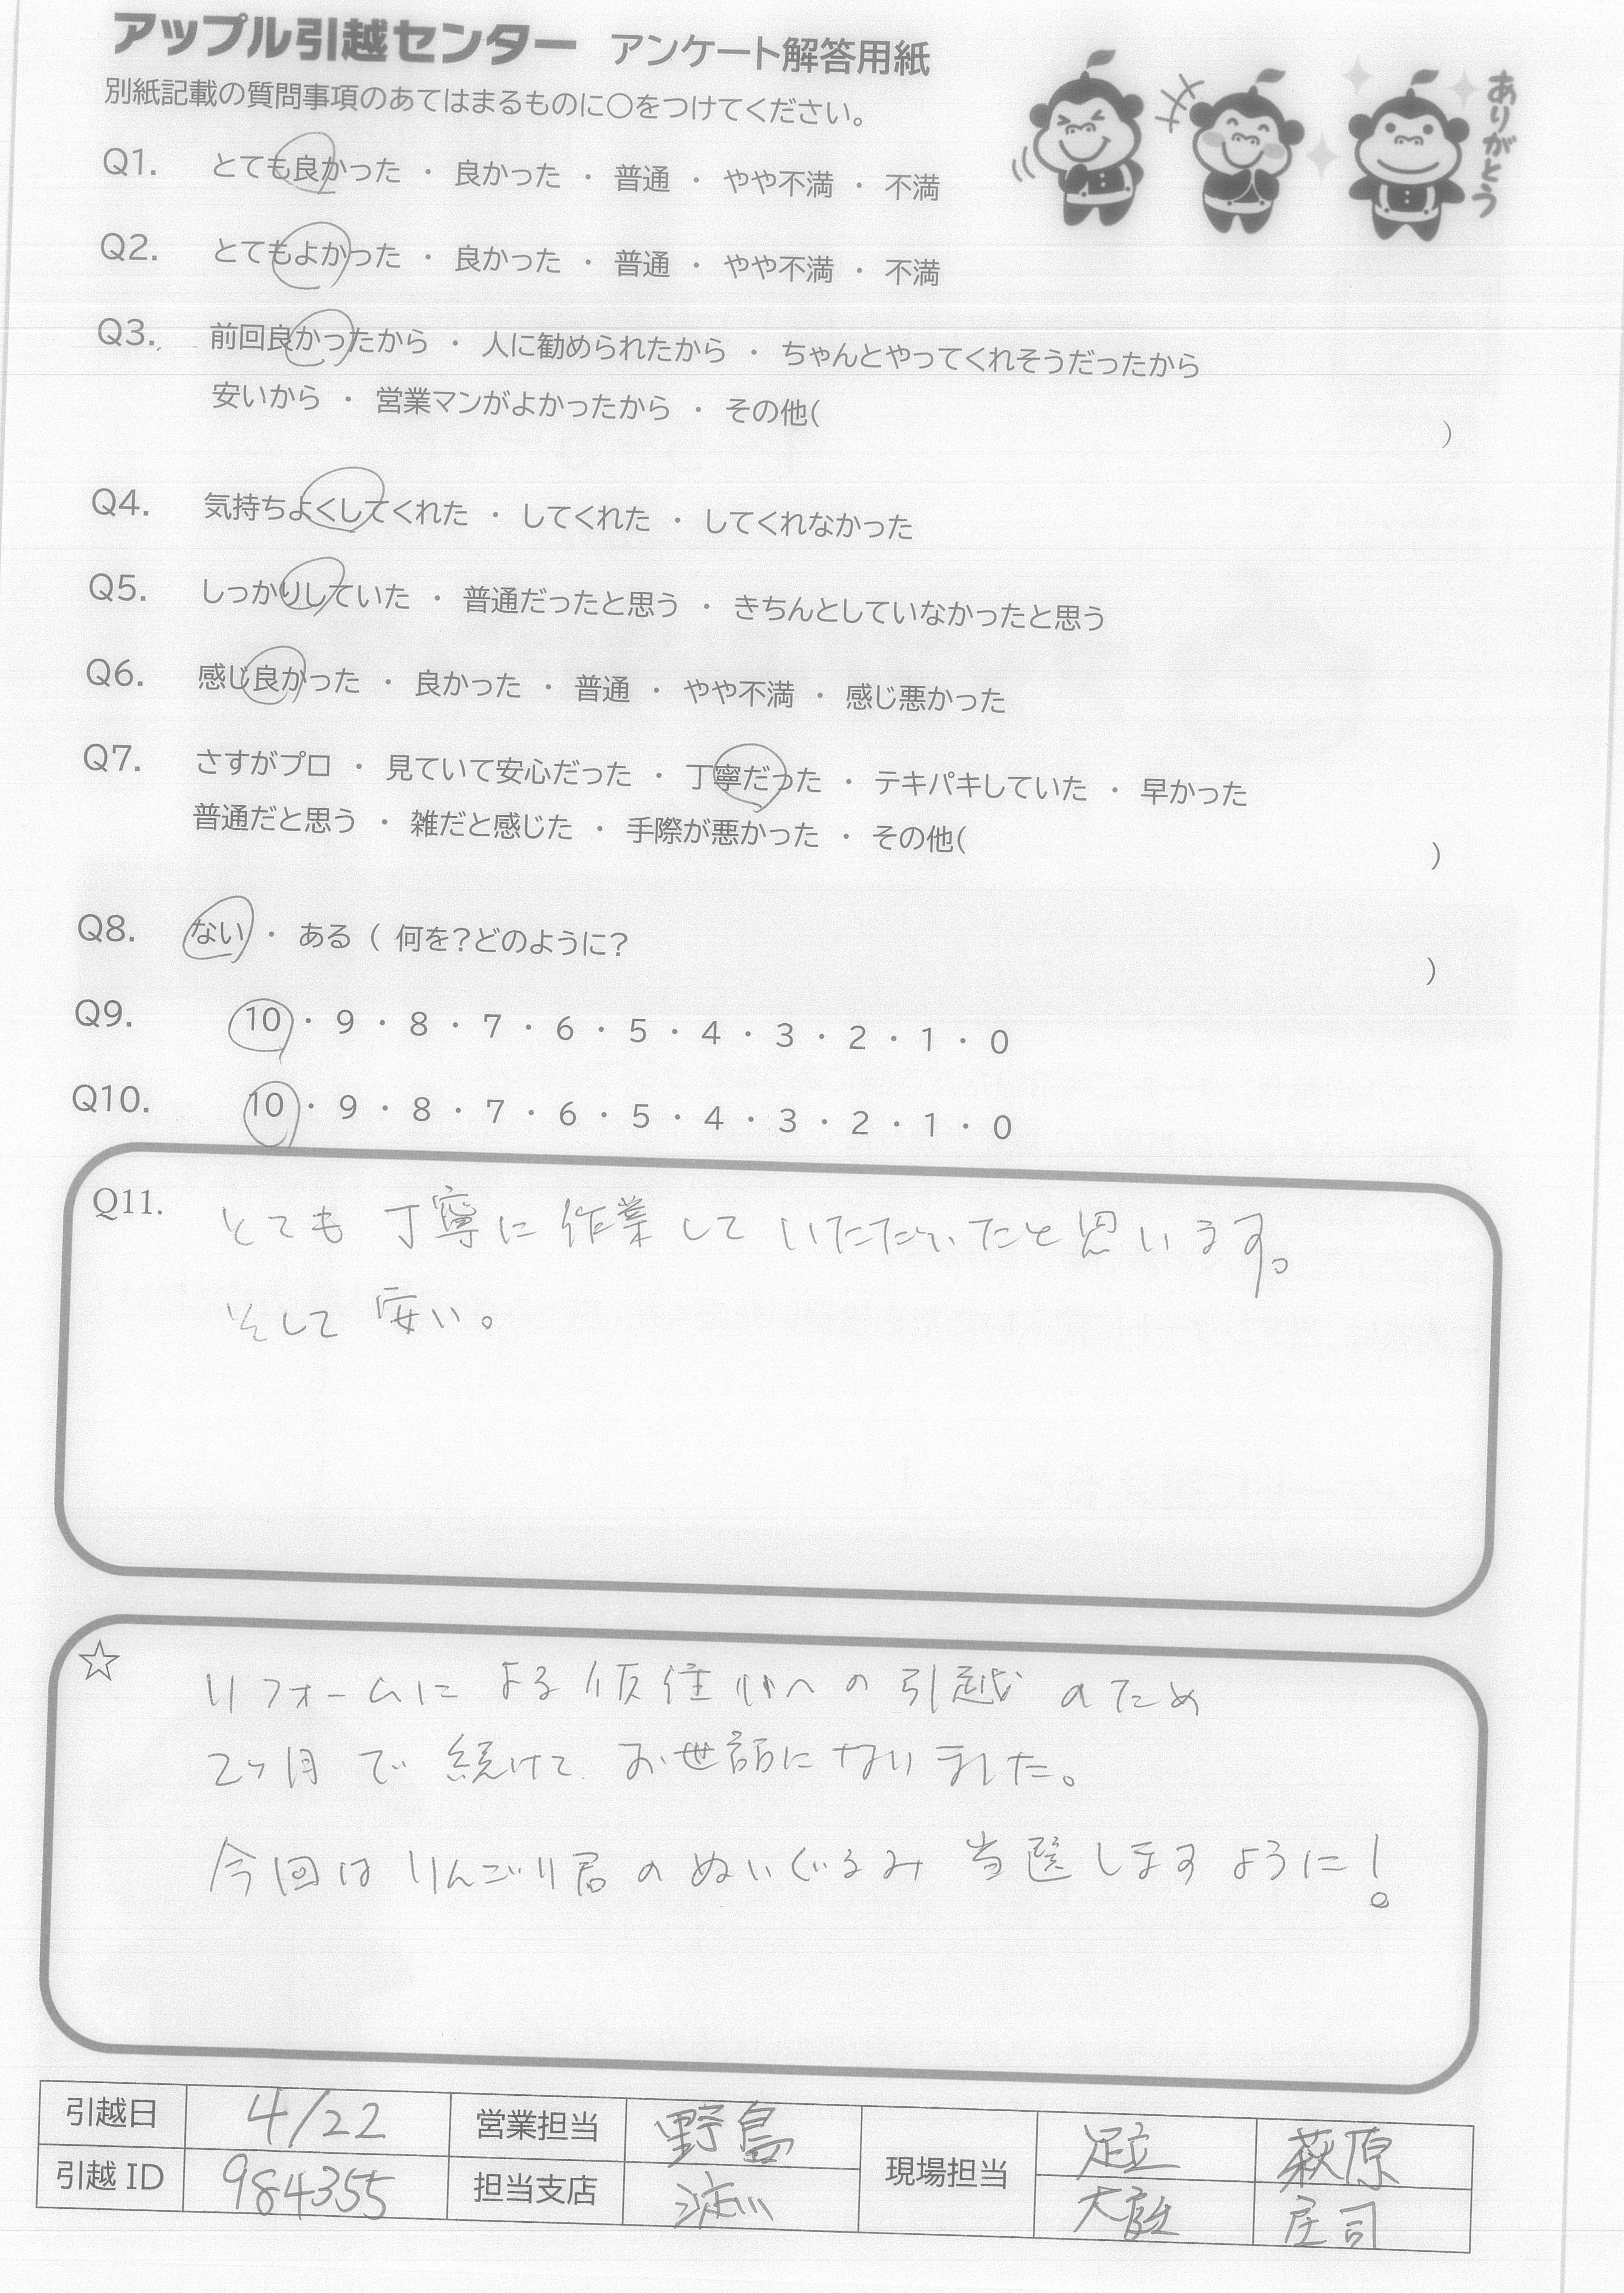 アップル引越センター アンケート解答用紙
別紙記載の質問事項のあてはまるものに○をつけてください。
ありがとう
Q1. とても良かった ・ 良かった ・ 普通 ・ やや不満 ・ 不満
Q2. とてもよかった ・ 良かった ・ 普通 ・ やや不満 ・ 不満
Q3. 前回良かったから ・ 人に勧められたから ・ ちゃんとやってくれそうだったから
安いから ・ 営業マンがよかったから ・ その他( )
Q4. 気持ちよくしてくれた ・ してくれた ・ してくれなかった
Q5. しっかりしていた ・ 普通だったと思う ・ きちんとしていなかったと思う
Q6. 感じ良かった ・ 良かった ・ 普通 ・ やや不満 ・ 感じ悪かった
Q7. さすがプロ ・ 見ていて安心だった ・ 丁寧だった ・ テキパキしていた ・ 早かった
普通だと思う ・ 雑だと感じた ・ 手際が悪かった ・ その他( )
Q8. ない ・ ある ( 何を?どのように? )
Q9. 10 ・ 9 ・ 8 ・ 7 ・ 6 ・ 5 ・ 4 ・ 3 ・ 2 ・ 1 ・ 0
Q10. 10 ・ 9 ・ 8 ・ 7 ・ 6 ・ 5 ・ 4 ・ 3 ・ 2 ・ 1 ・ 0
Q11. とても 丁寧に 作業して いただいたと思います。
そして 安い。
☆ リフォームに よる 仮住いへの 引越 のため
2ヶ月 で 続けて お世話に なりました。
今回は りんごり君 の ぬいぐるみ 当選しますように!
引越日 4/22 営業担当 野島 現場担当 足立 萩原
引越 ID 984355 担当支店 庄司